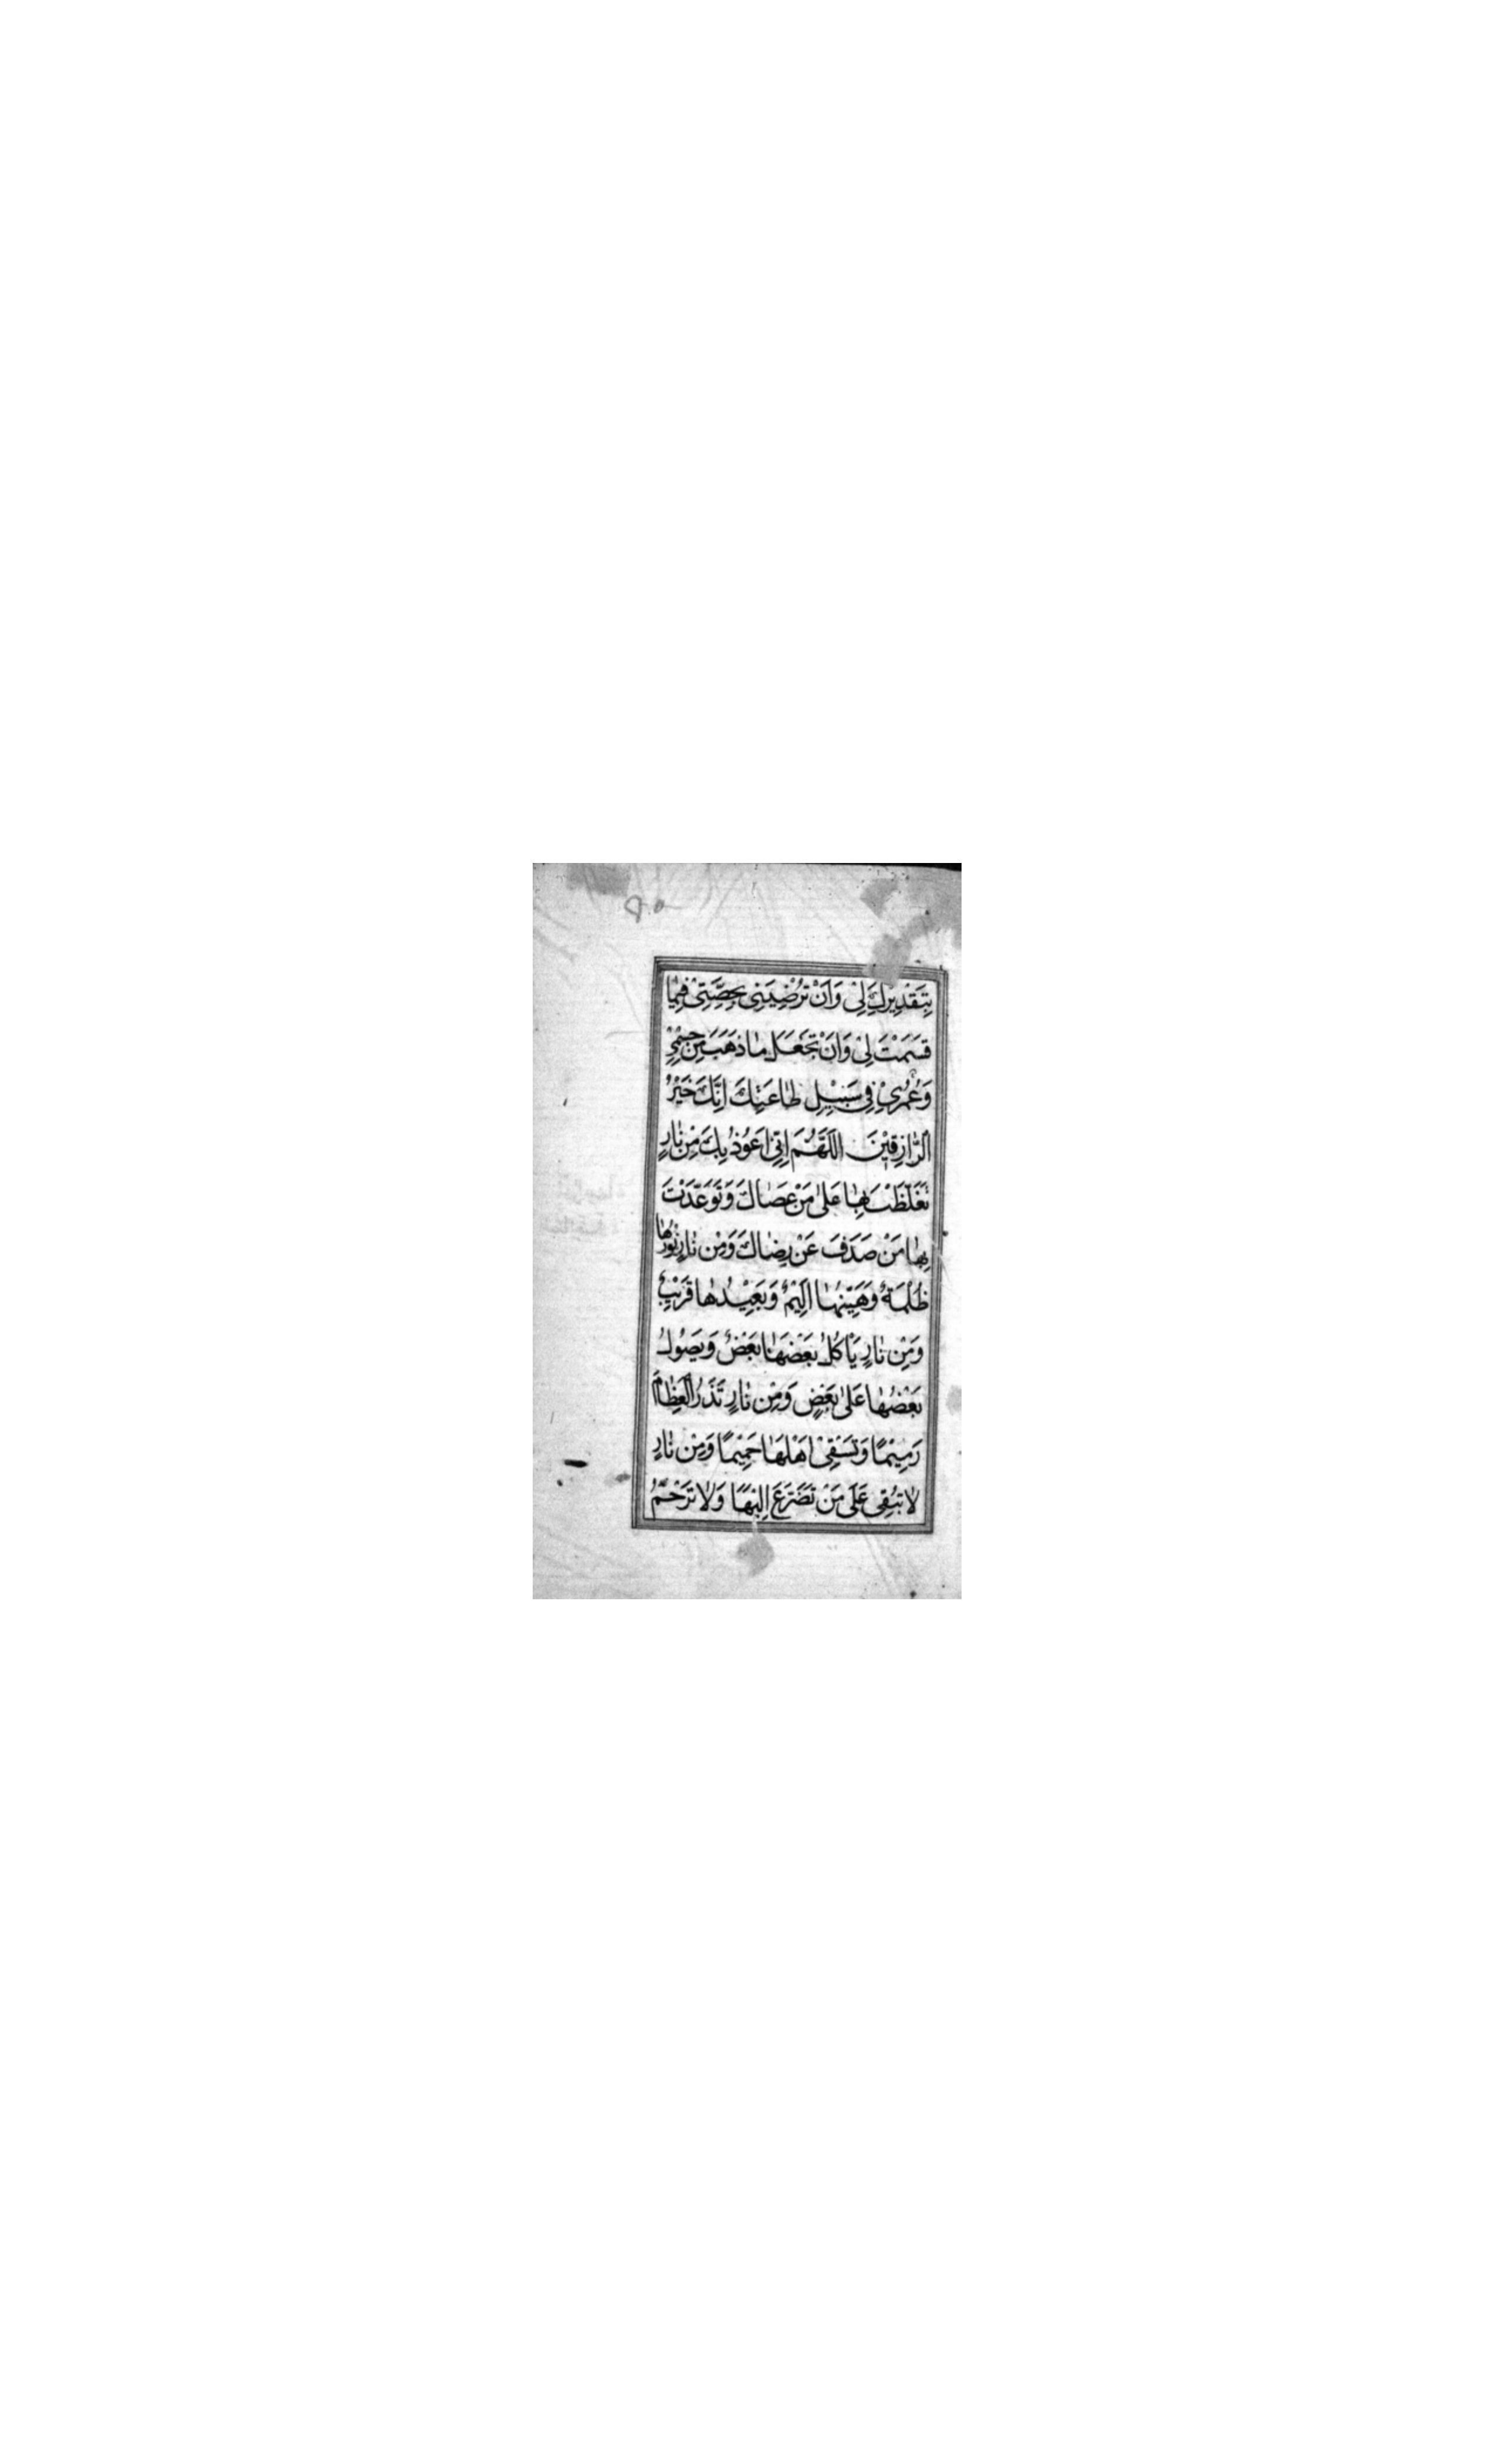 بِتَقْدِيرِكَ لِيْ وَاَنْ تُرْضِيَنِيْ بِحِصَّتِيْ فِيْمَا
قَسَمْتَ لِيْ وَاَنْ تَجْعَلَ مَا ذَهَبَ مِنْ جِسْمِيْ
وَعُمُرِيْ فِيْ سَبِيْلِ طَاعَتِكَ اِنَّكَ خَيْرُ
الرَّازِقِيْنَ اَللّٰهُمَّ اِنِّيْ اَعُوْذُ بِكَ مِنْ نَارٍ
تَغَلَّظْتَ بِهَا عَلٰى مَنْ عَصَاكَ وَتَوَعَّدْتَ
بِهَا مَنْ صَدَفَ عَنْ رِضَاكَ وَمِنْ نَارٍ نُوْرُهَا
ظُلْمَةٌ وَهَيِّنُهَا اَلِيْمٌ وَبَعِيْدُهَا قَرِيْبٌ
وَمِنْ نَارٍ يَاْكُلُ بَعْضَهَا بَعْضٌ وَيَصُوْلُ
بَعْضُهَا عَلٰى بَعْضٍ وَمِنْ نَارٍ تَذَرُ الْعِظَامَ
رَمِيْمًا وَتَسْقِيْ اَهْلَهَا حَمِيْمًا وَمِنْ نَارٍ
لَا تُبْقِيْ عَلٰى مَنْ تَضَرَّعَ اِلَيْهَا وَلَا تَرْحَمُ